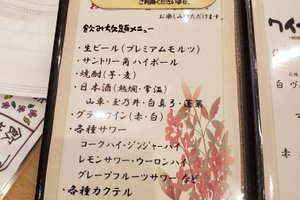 ご利用くださいませ。
お楽しみいただけます。
飲み放題メニュー
・生ビール(プレミアムモルツ)
・サントリー角ハイボール
・焼酎(芋・麦)
・日本酒(熱燗・常温)
山車・玉乃井・白真弓・蓬莱
・グラスワイン(赤・白)
・各種サワー
コークハイ・ジンジャーハイ
レモンサワー・ウーロンハイ
グレープフルーツサワー など
・各種カクテル
ワイン
白
赤